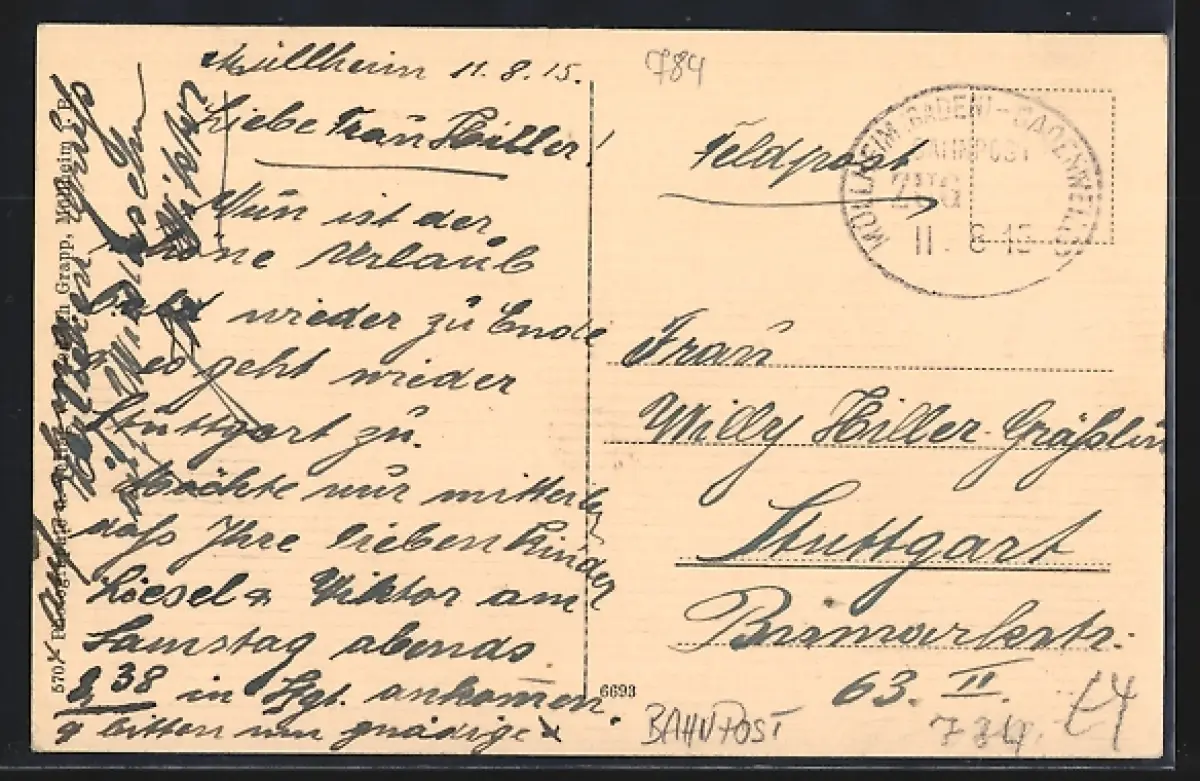 Müllheim 11.8.15.
Liebe Frau Hiller!
Nun ist der
schöne Urlaub
bald wieder zu Ende
u. es geht wieder
Stuttgart zu.
Möchte nur mitteilen
daß Ihre lieben Kinder
Liesel & Viktor am
Samstag abends
8 38 in Stgt. ankommen.
& bitten um gnädige
Viktor
Grapp, Müllheim i. B.
570
6693
784
Feldpost
MÜLLHEIM (BADEN) - BADENWEILER
BAHNPOST
ZUG
11. 8 15
Frau
Willy Hiller-Gräßlin
Stuttgart
Bismarkstr.
63. II.
BAHNPOST
784.